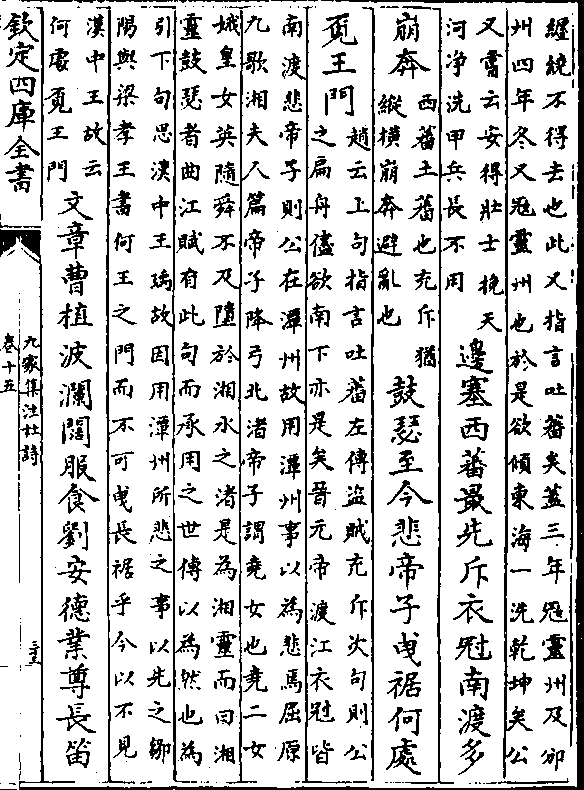 纒繞不得去也此又指言吐蕃矣蓋三年冦靈州及邠
州四年冬又冦靈州也於是欲傾東海一洗乾坤矣公
又嘗云安得壯士挽天
河净洗甲兵長不用
邊塞西蕃最充斥衣冠南渡多
崩奔
西蕃土蕃也充斥猶
縱横崩奔避亂也
鼓瑟至今悲帝子曵裾何處
覓王門
趙云上句指言吐蕃左傳盜賊充斥次句則公
之扁舟儘欲南下亦是矣晉元帝渡江衣冠皆
南渡悲帝子則公在潭州故用潭州事以為悲焉屈原
九歌湘夫人篇帝子降兮北渚帝子謂堯女也堯二女
娥皇女英隨舜不及墮於湘水之渚是為湘靈而曰湘
靈鼓瑟者曲江賦有此句而承用之世傳以為然也為
引下句思漢中王瑀故因用潭州所悲之事以先之鄒
陽與梁孝王書何王之門而不可曵長裾乎今以不見
漢中王故云
何處覓王門
文章曹植波瀾闊服食劉安德業尊長笛
欽定四庫全書
九家集注杜詩
卷十五